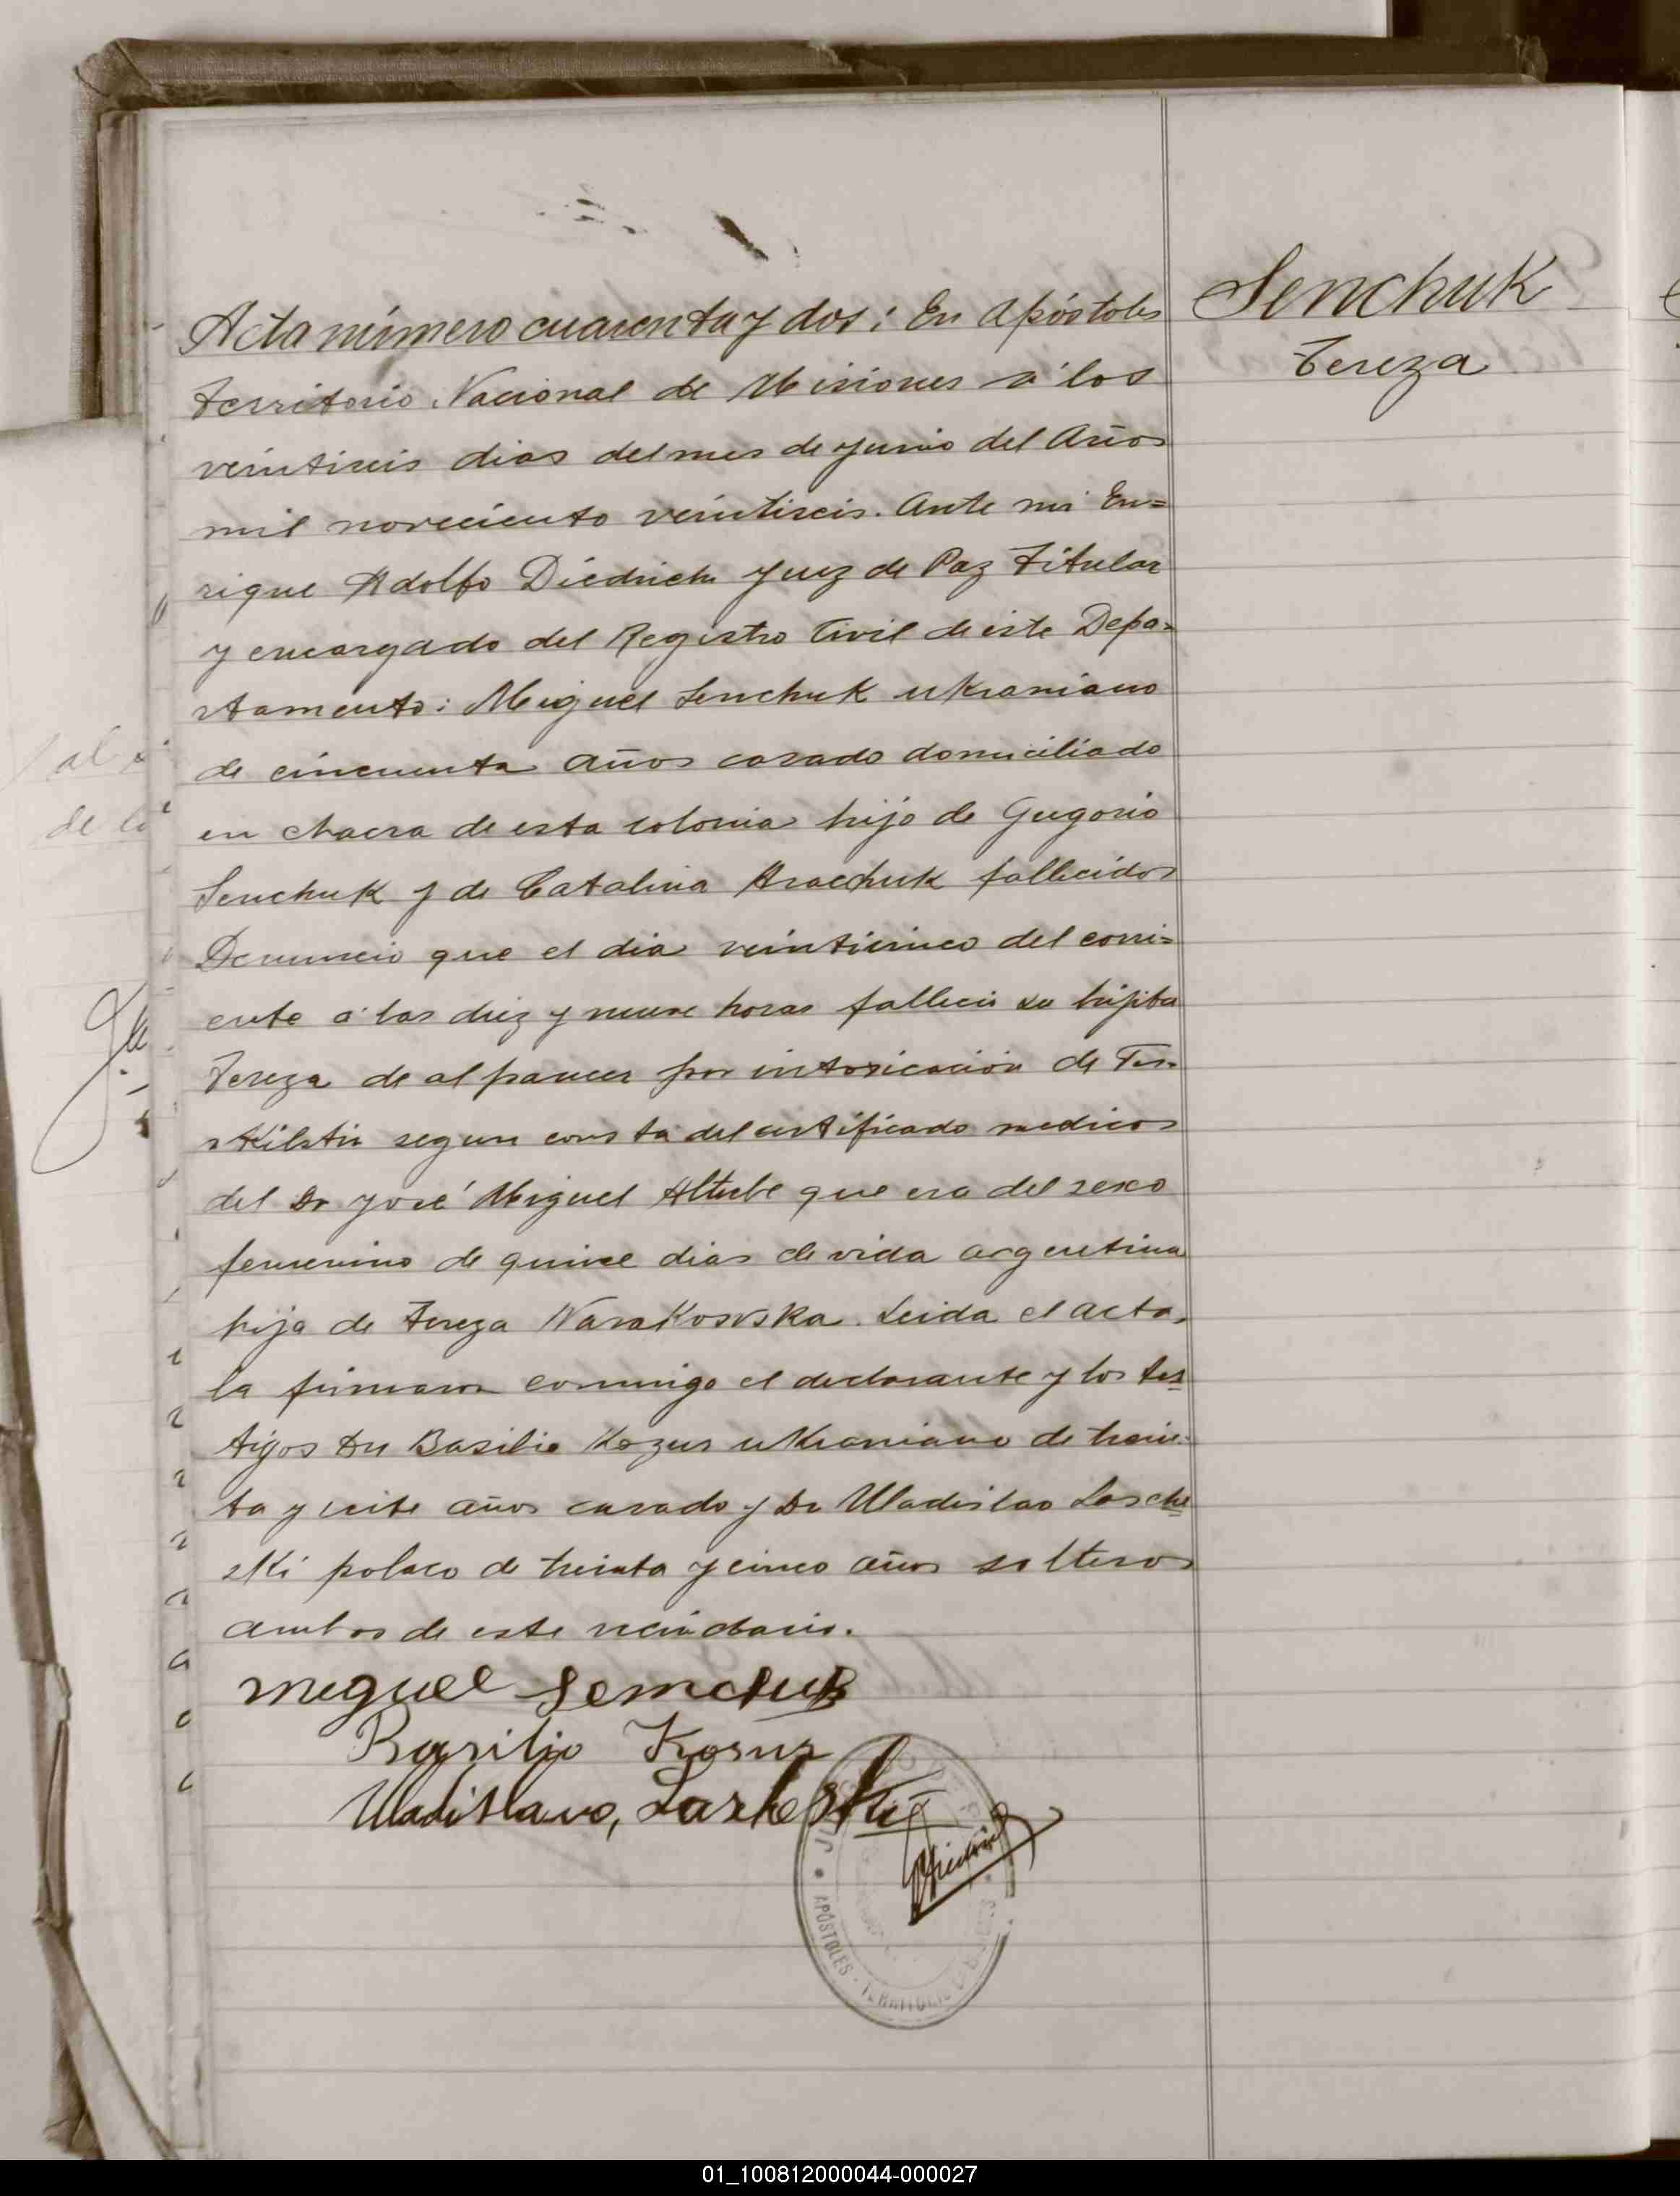 Senchuk
Tereza
Acta número cuarenta y dos: En Apóstoles
territorio Nacional de Misiones a los
veintiseis dias del mes de Junio del Año
mil noveciento veintiseis. Ante mi En=
rique Adolfo Diedrich Juez de Paz Titular
y encargado del Registro Civil de este Depa=
rtamento: Miguel Senchuk ukraniano
de cincuenta años casado domiciliado
en chacra de esta colonia hijo de Gregorio
Senchuk y de Catalina Arachuk fallecidos
Denuncio que el dia veinticinco del corri=
ente a las diez y nueve horas fallecio su hijita
Tereza de al parecer por intoxicación de
segun consta del certificado medico
del Dr José Miguel Altube que era del sexo
femenino de quince dias de vida argentina
hija de Tereza Narakovska. Leida el acta,
la firmaron conmigo el declarante y los tes
tigos Dn Basilio Kozur ukraniano de trein=
ta y siete años casado y Dn Uladislao Lasche
ski polaco de treinta y cinco años soltero
ambos de este vecindario.
miguel Semchuk
Basilio Kosur
Uladislavo,
APÓSTOLES - TERRITORIO
01_100812000044-000027